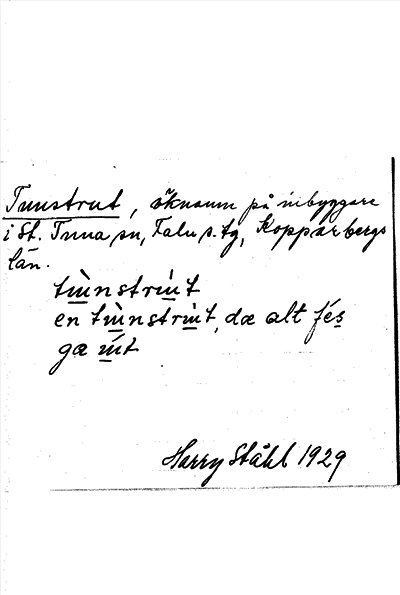 Tunstrut, öknamn på inbyggare
i St. Tuna sn, Falu s. tg, Kopparbergs
län.
tùnstrút
en tùnstrút, dæ alt fés
gæ út
Harry Ståhl 1929